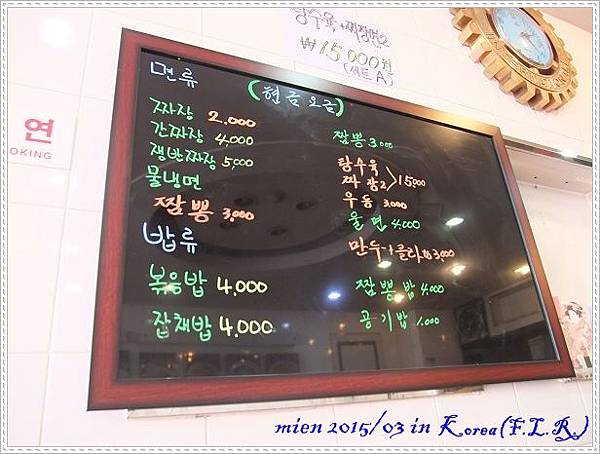 탕수육+짜장면2
₩15,000원
(세트A)
연
OKING
면류
(현금요금)
짜장 2,000
간짜장 4,000
쟁반짜장 5,000
물냉면
짬뽕 3,000
밥류
볶음밥 4,000
잡채밥 4,000
짬뽕 3,000
탕수육
짜장2 > 15,000
우동 3,000
울면 4,000
만두+콜라 3,000
짬뽕밥 4,000
공기밥 1,000
mien 2015/03 in Korea(F.L.R.)